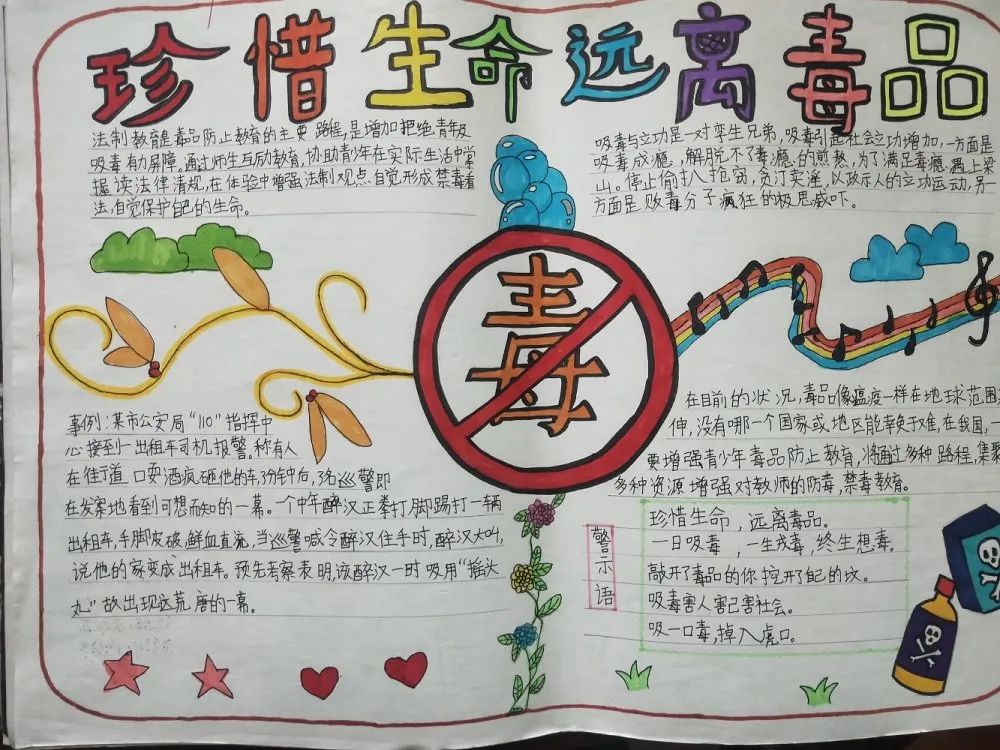 珍惜生命远离毒品
法制教育是毒品防止教育的主要路程,是增加拒绝青年及
吸毒有力屏障。通过师生与励教育,协助青少年在实际生活中掌
握读法律清规,在体验中增强法制观点自觉形成禁毒看
法,自觉保护自己的生命。
吸毒与立功是一对孪生兄弟,吸毒引起社会立功增加,一方面是
吸毒成瘾,解脱不了毒瘾的煎熬,为了满足毒瘾遇上梁
山。停止偷扒抢窃,贪汀卖淫,以政示人的立功运动,另一
方面是败毒分子疯狂的极思威吓。
毒
事例:某市公安局“110”指挥中
心接到一出租车司机报警。称有人
在住道口耍酒疯砸他的车,3分钟后,3名巡警即
在发案地看到可想而知的一幕。一个中年醉汉正拳打脚踢打一辆
出租车,手脚皮破,鲜血直流,当巡警喊令醉汉住手时,醉汉大叫,
说他的家变成出租车。预先考察表明,该醉汉一时吸用“摇头
丸”故出现这荒唐的一幕。
在目前的状况,毒品像瘟疫一样在地球范围
伸,没有哪一个国家或地区能幸免于难,在我国,一
要增强青少年毒品防止教育,将通过多种路程,集聚
多种资源增强对教师的防毒,禁毒教育。
警示语
珍惜生命,远离毒品。
一日吸毒,一生戎毒,终生想毒。
敲开了毒品的你挖开了自己的坟。
吸毒害人害己害社会。
吸一口毒,掉入虎口。